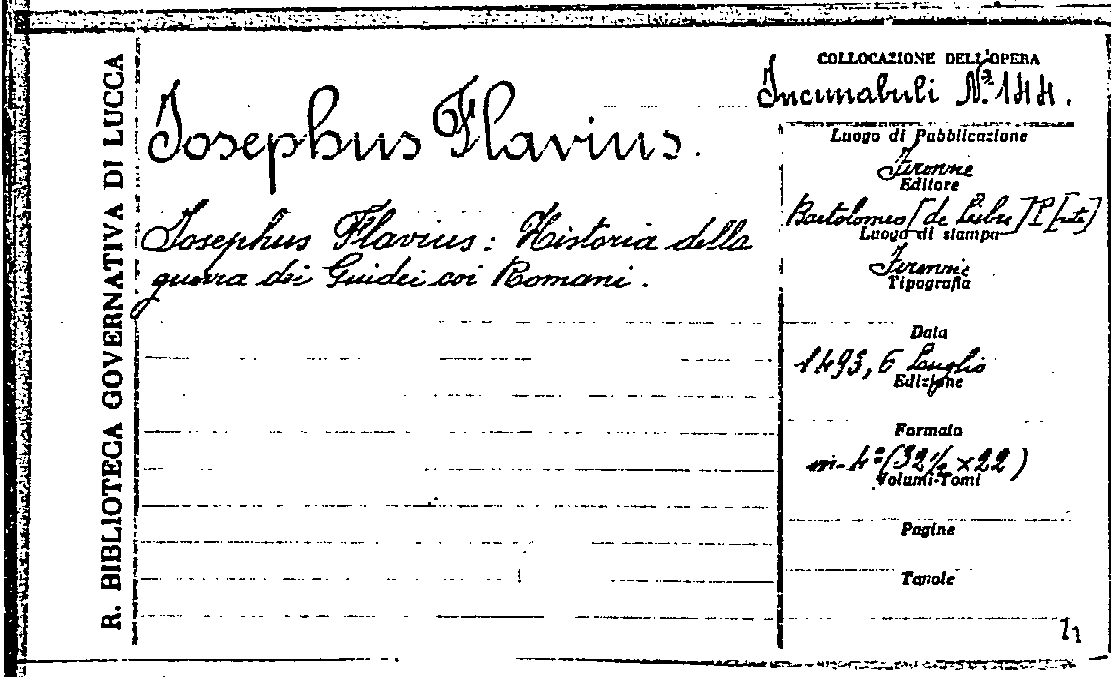 R. BIBLIOTECA GOVERNATIVA DI LUCCA
Josephus Flavius.
Josephus Flavius: Historia della
guerra dei Guidei coi Romani.
COLLOCAZIONE DELL'OPERA
Incunabuli N.° 144.
Luogo di Pubblicazione
Firenze
Editore
Bartolomeo [de Libri] P[rete]
Luogo di stampa
Firenze
Tipografia
Data
1493, 6 Luglio
Edizione
Formato
in-4° (32½ × 22)
Volumi-Tomi
Pagine
Tavole